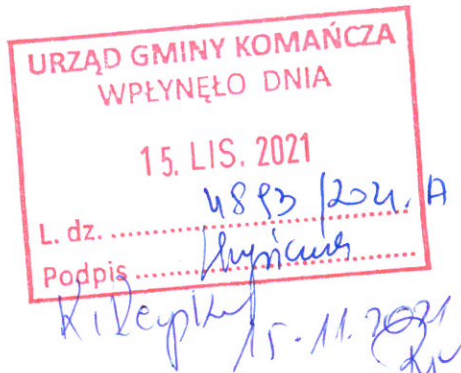 URZĄD GMINY KOMAŃCZA
WPŁYNĘŁO DNIA
15. LIS. 2021
L. dz. 4893/2021. A
Podpis
15.11.2021